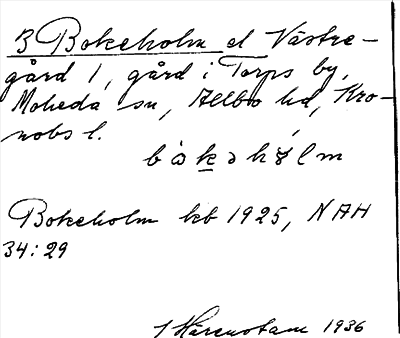 3 Bokeholm el Västre-
gård 1, gård i Torps by,
Moheda sn, Allbo hd, Kro-
nobs l.
bo̊kəhɷlm
Bokeholm kb 1925, NAH
34:29
1936